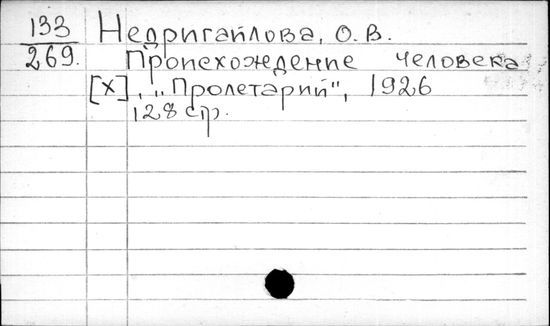 133 Недригайлова, О.В.
269. Происхождение человека
[X], „Пролетарий", 1926
128 стр.